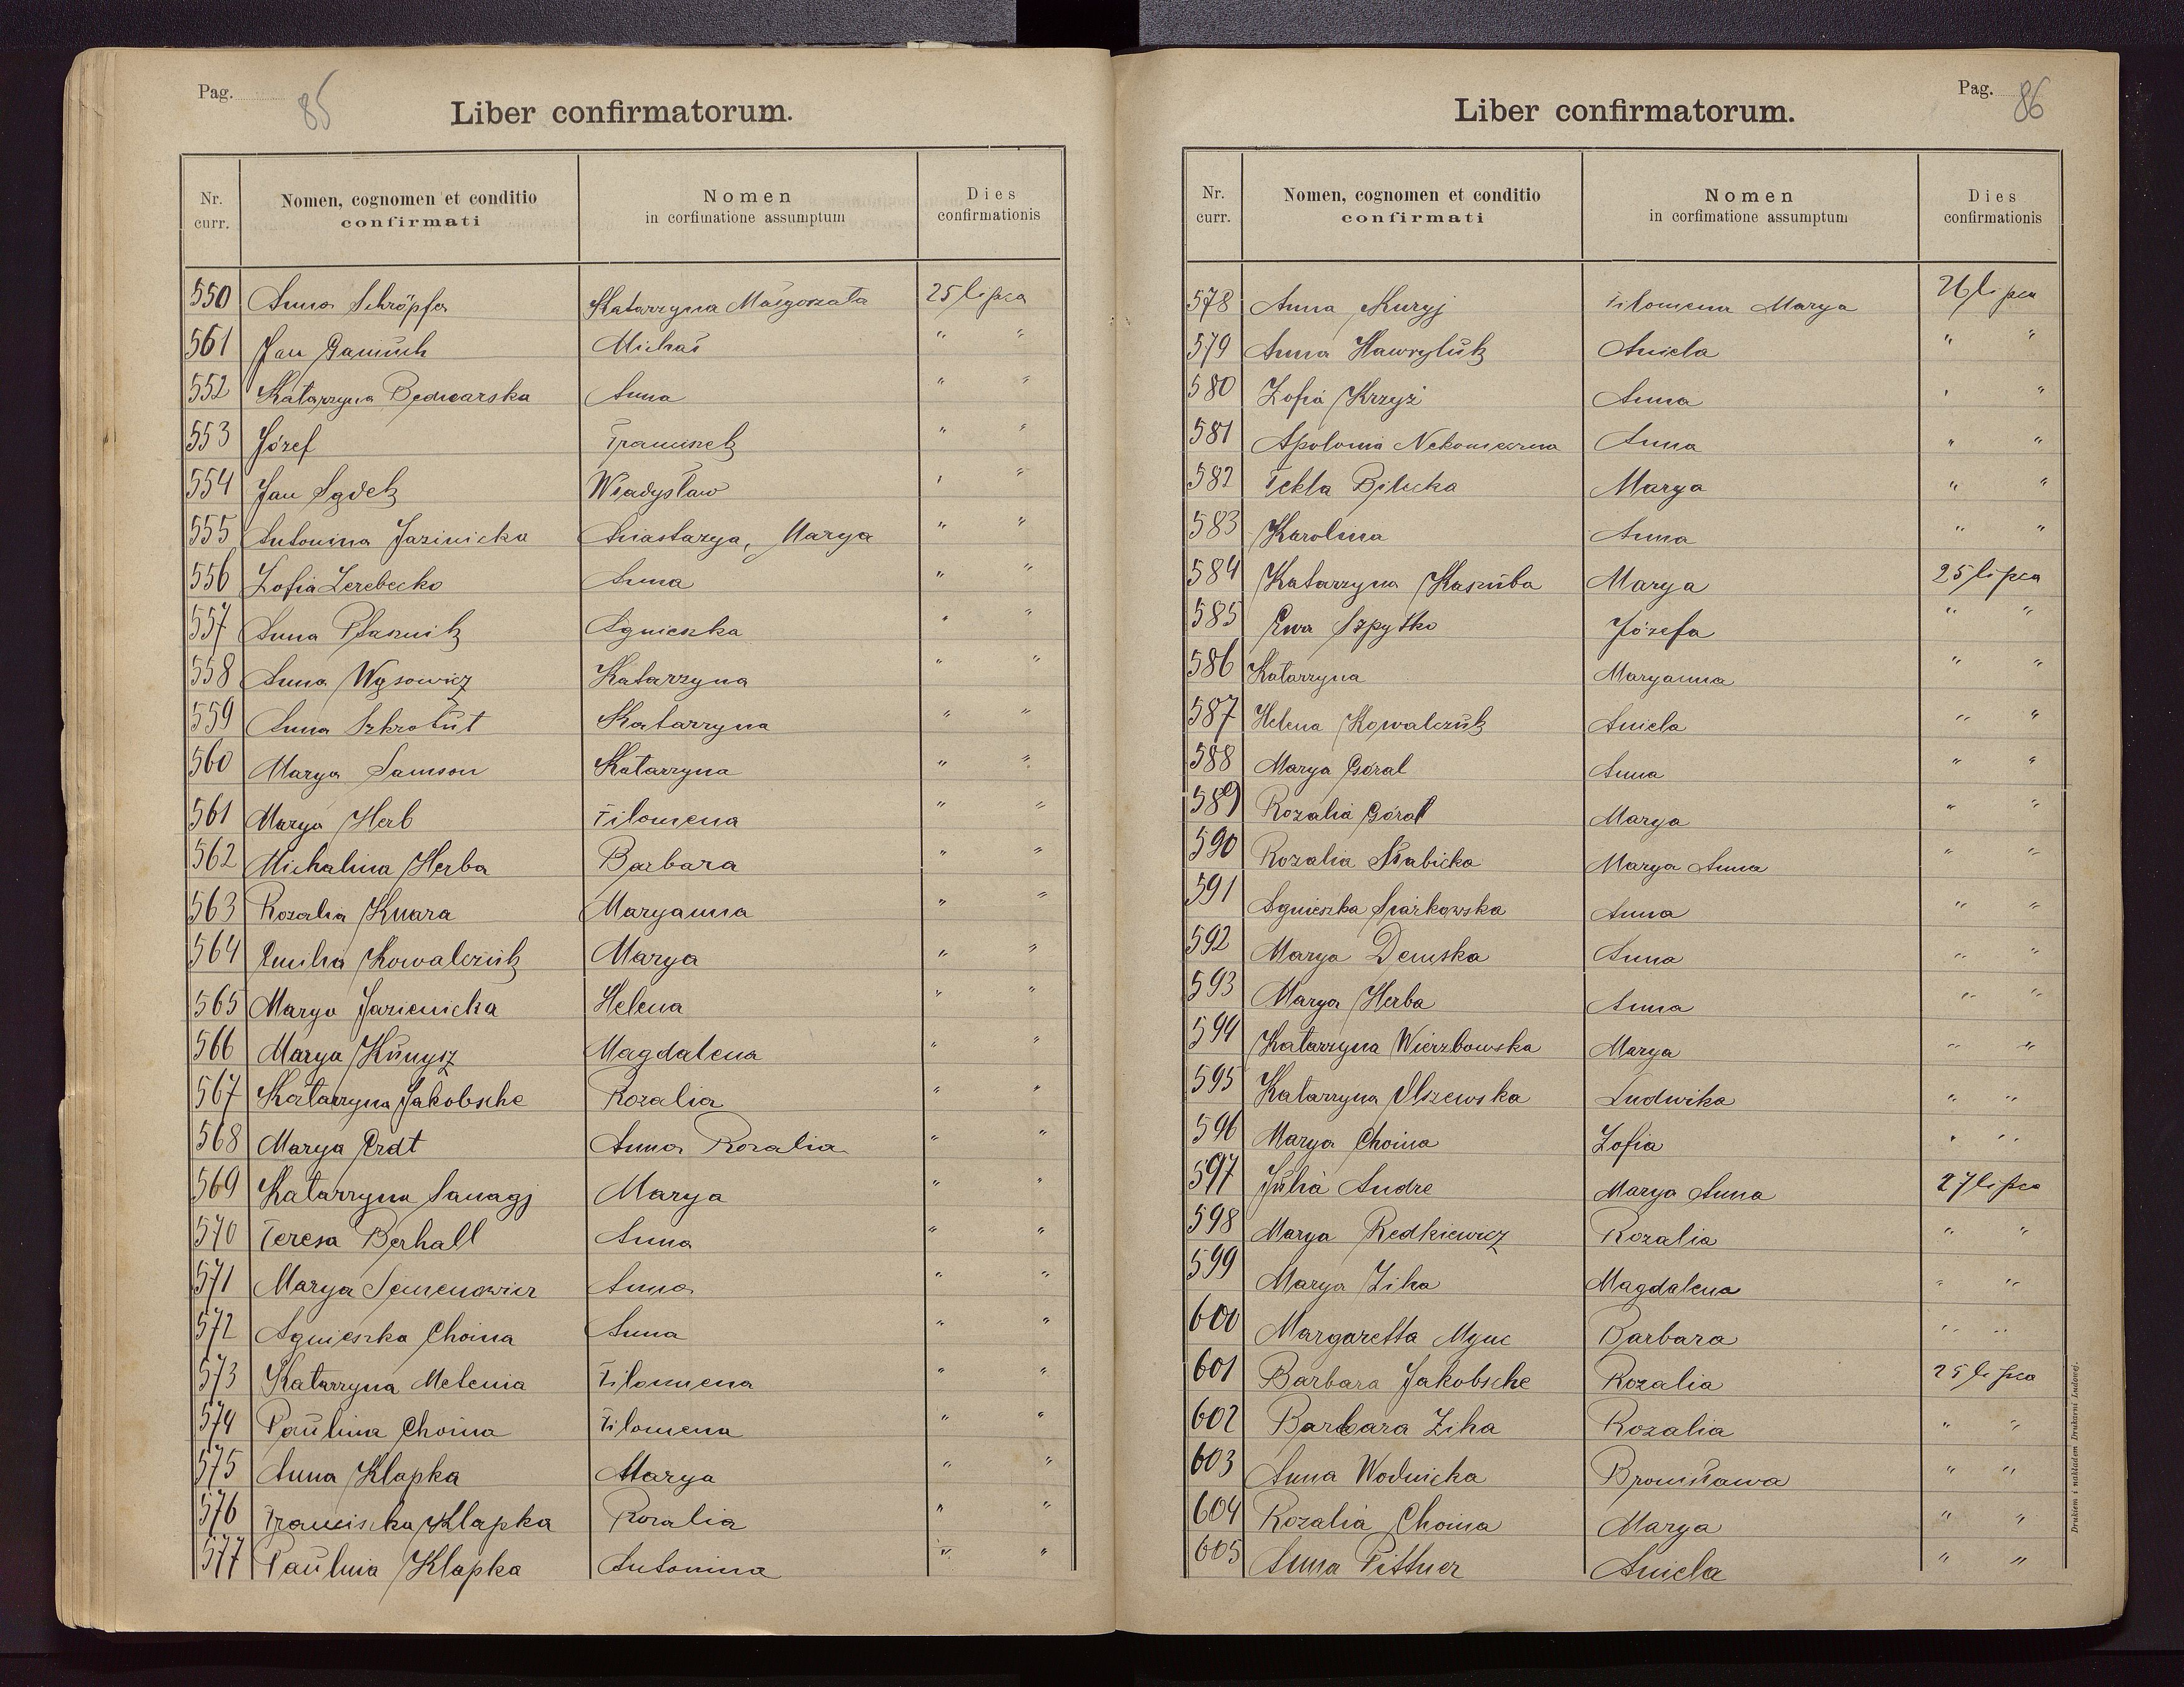 Pag. 85
Liber confirmatorum.
Nr. curr. Nomen, cognomen et conditio confirmati Nomen in corfimatione assumptum Dies confirmationis
550 Anna Schröpfer Katarzyna Małgorzata 25 lipca
561 Jan Michał " "
552 Katarzyna Bednarska Anna " "
553 Józef Franciszek " "
554 Jan Sądek Władysław " "
555 Antonina Jazinicka Anastazya, Marya " "
556 Zofia Zerebecko Anna " "
557 Anna Ptasznik Agnieszka " "
558 Anna Wąsowicz Katarzyna " "
559 Anna Szkrołut Katarzyna " "
560 Marya Samson Katarzyna " "
561 Marya Herb Filomena " "
562 Michalina Herba Barbara " "
563 Rozalia Knara Maryanna " "
564 Emilia Kowalczuk Marya " "
565 Marya Jazienicka Helena " "
566 Marya Kunysz Magdalena " "
567 Katarzyna Jakobsche Rozalia " "
568 Marya Erdt Anna Rozalia " "
569 Katarzyna Sanagj Marya " "
570 Teresa Berhall Anna " "
571 Marya Semenowicz Anna " "
572 Agnieszka Choina Anna " "
573 Katarzyna Melenia Filomena " "
574 Paulina Choina Filomena " "
575 Anna Klapka Marya " "
576 Franciszka Klapka Rozalia " "
577 Paulina Klapka Antonina " "
Pag. 86
Liber confirmatorum.
Nr. curr. Nomen, cognomen et conditio confirmati Nomen in corfimatione assumptum Dies confirmationis
578 Anna Kuryj Filomena Marya 26 lipca
579 Anna Hawryluk Aniela " "
580 Zofia Krzyż Anna " "
581 Apolonia Anna " "
582 Tekla Bilecka Marya " "
583 Karolina Anna " "
584 Katarzyna Kaszuba Marya 25 lipca
585 Ewa Szpytko Józefa " "
586 Katarzyna Maryanna " "
587 Helena Kowalczuk Aniela " "
588 Marya Góral Anna " "
589 Rozalia Góral Marya " "
590 Rozalia Słabicka Marya Anna " "
591 Agnieszka Siarkowska Anna " "
592 Marya Demska Anna " "
593 Marya Herba Anna " "
594 Katarzyna Wierzbowska Marya " "
595 Katarzyna Olszewska Ludwika " "
596 Marya Choina Zofia " "
597 Julia Andre Marya Anna 27 lipca
598 Marya Redkiewicz Rozalia " "
599 Marya Ziha Magdalena " "
600 Margaretta Mync Barbara " "
601 Barbara Jakobsche Rozalia 25 lipca
602 Barbara Ziha Rozalia " "
603 Anna Wodnicka Bronisława " "
604 Rozalia Choina Marya " "
605 Anna Pittner Aniela " "
Drukiem i nakładem Drukarni Ludowej.